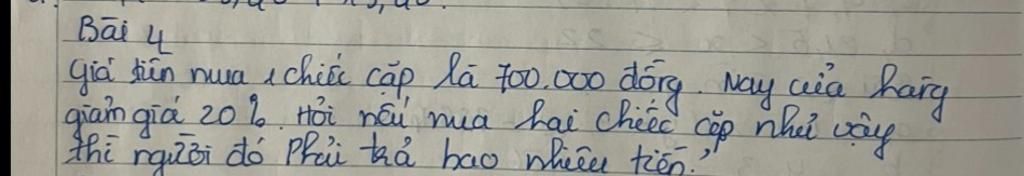 Bài 4
giá tiền mua 1 chiếc cặp là 700.000 đồng. Nay cửa hàng
giảm giá 20%. Hỏi nếu mua hai chiếc cặp như vậy
thì người đó phải trả bao nhiêu tiền?